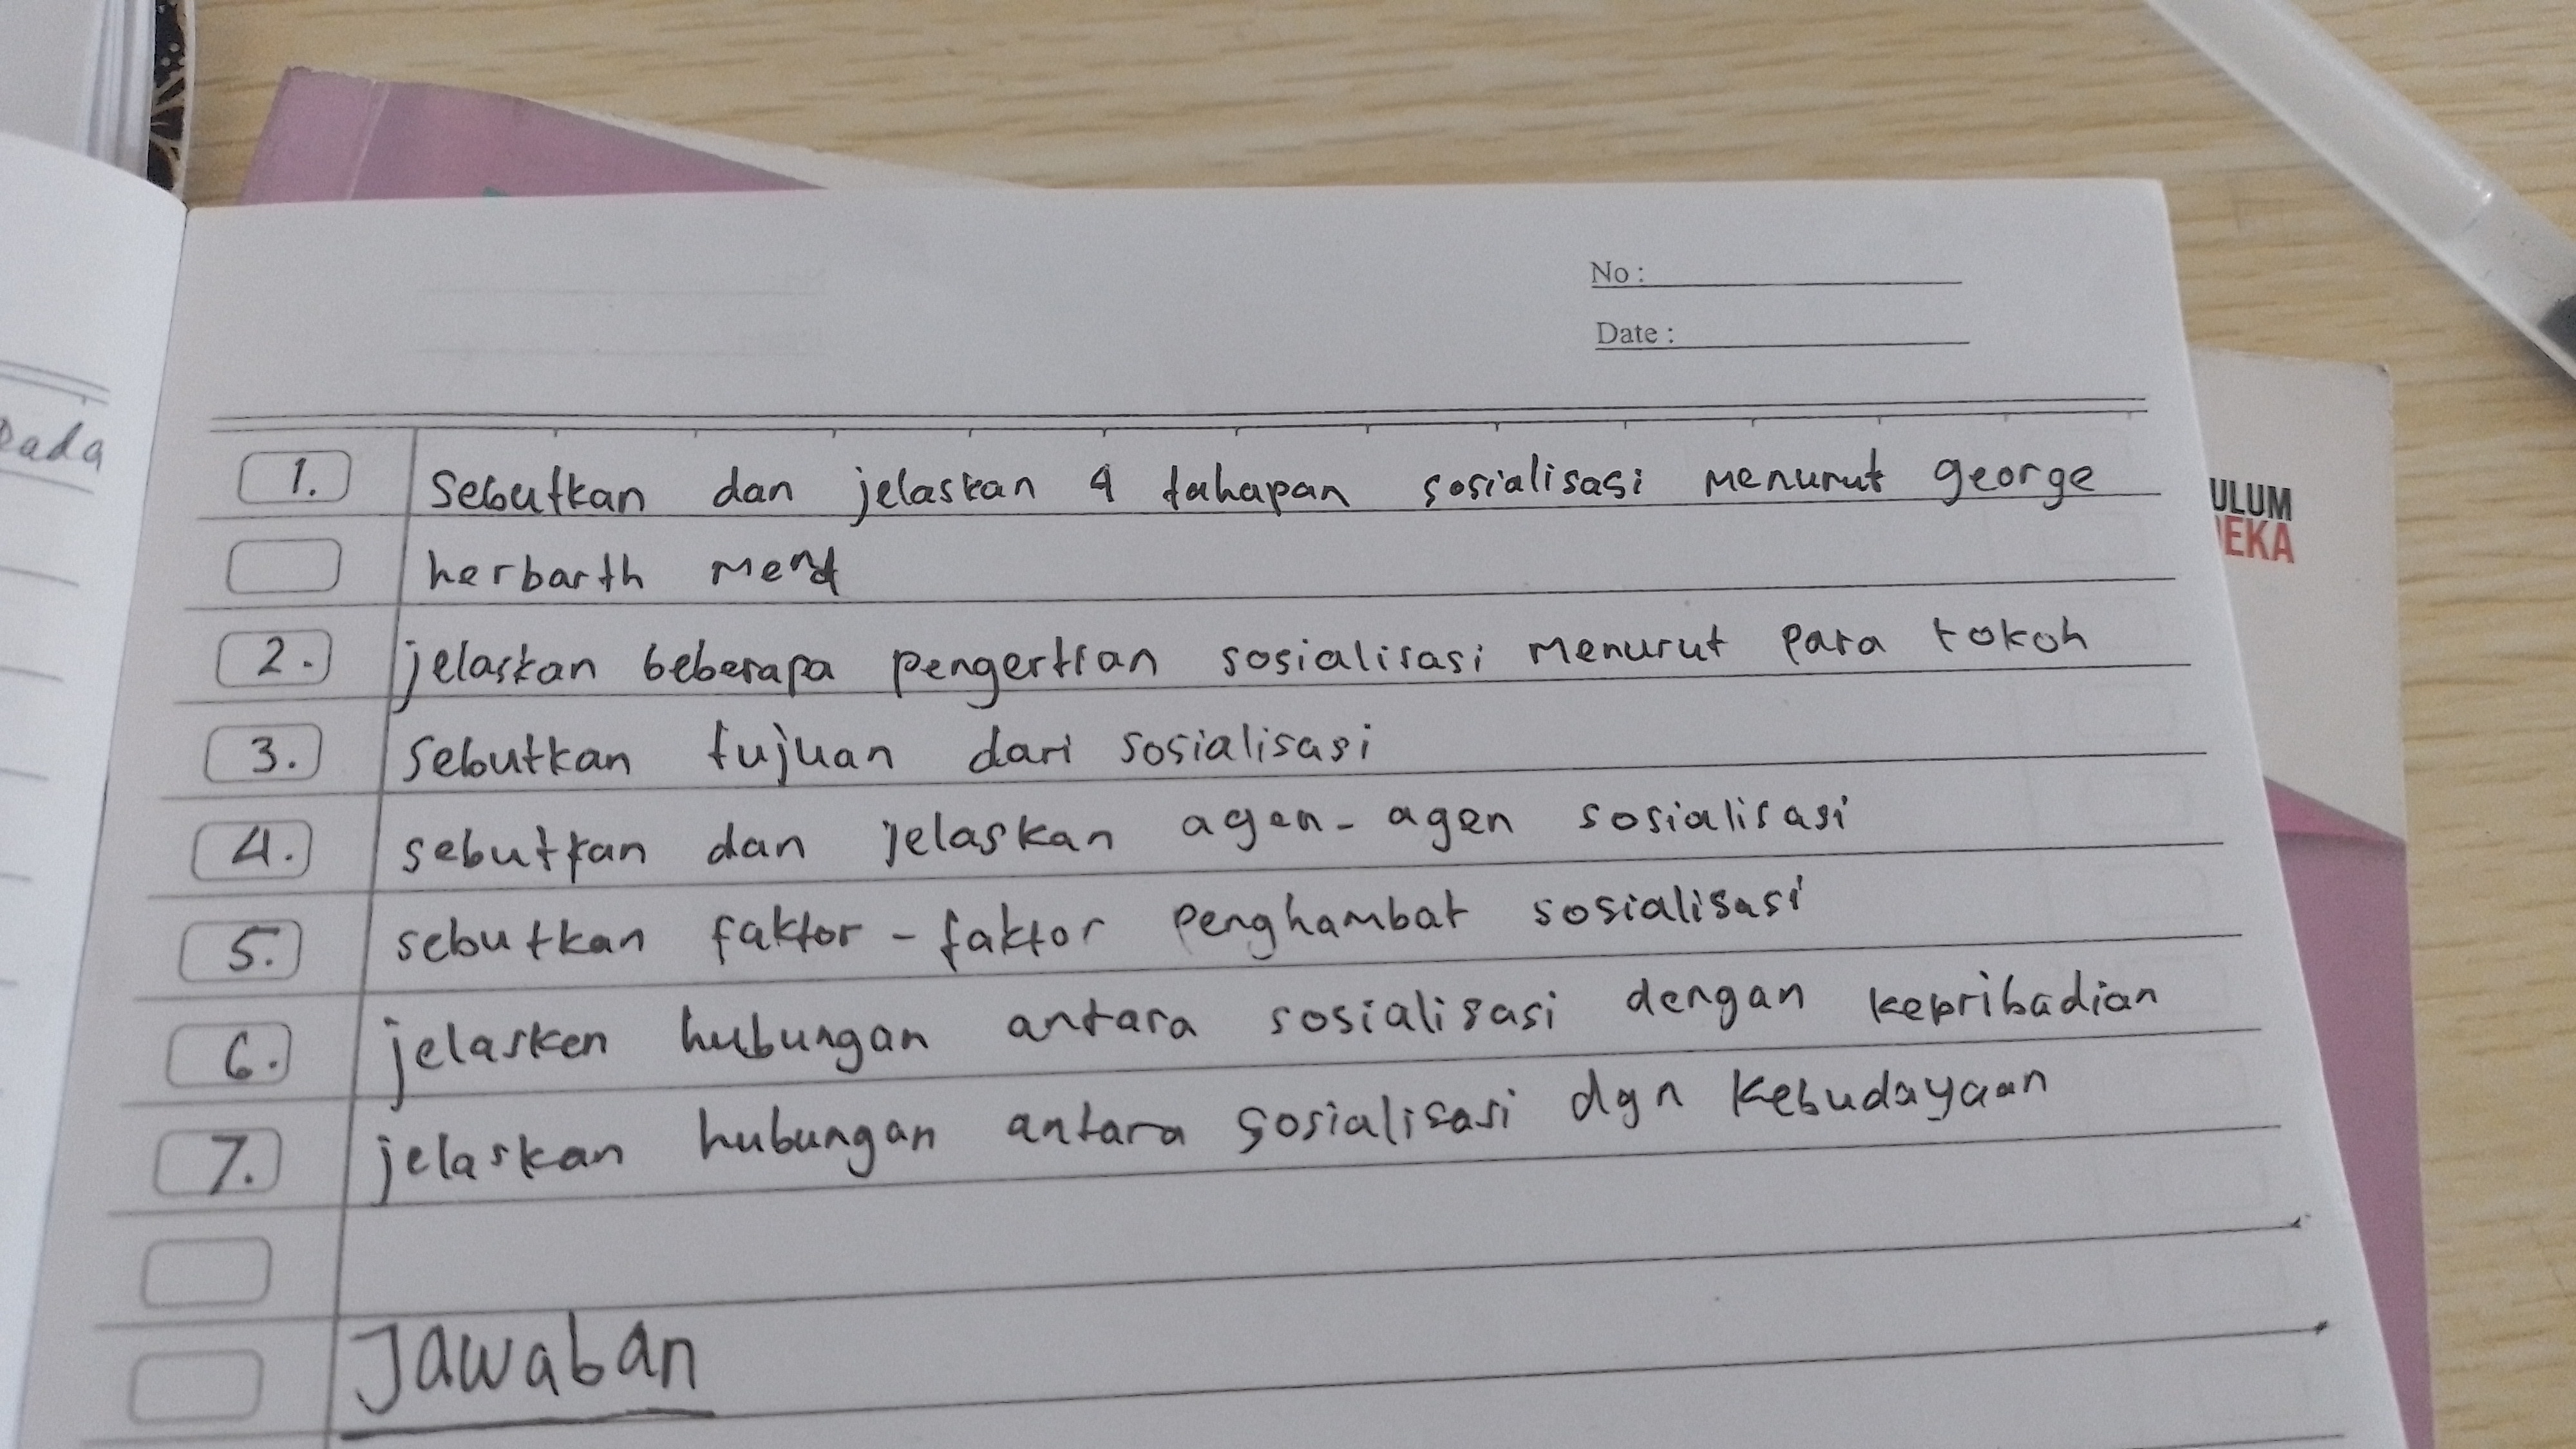 pada
No:
Date:
1. Sebutkan dan jelaskan 4 tahapan sosialisasi menurut george
herbarth mend
2. jelaskan beberapa pengertian sosialisasi menurut para tokoh
3. Sebutkan tujuan dari sosialisasi
4. sebutkan dan jelaskan agen-agen sosialisasi
5. sebutkan faktor-faktor penghambat sosialisasi
6. jelasken hubungan antara sosialisasi dengan kepribadian
7. jelaskan hubungan antara sosialisasi dgn kebudayaan
Jawaban
ULUM
EKA